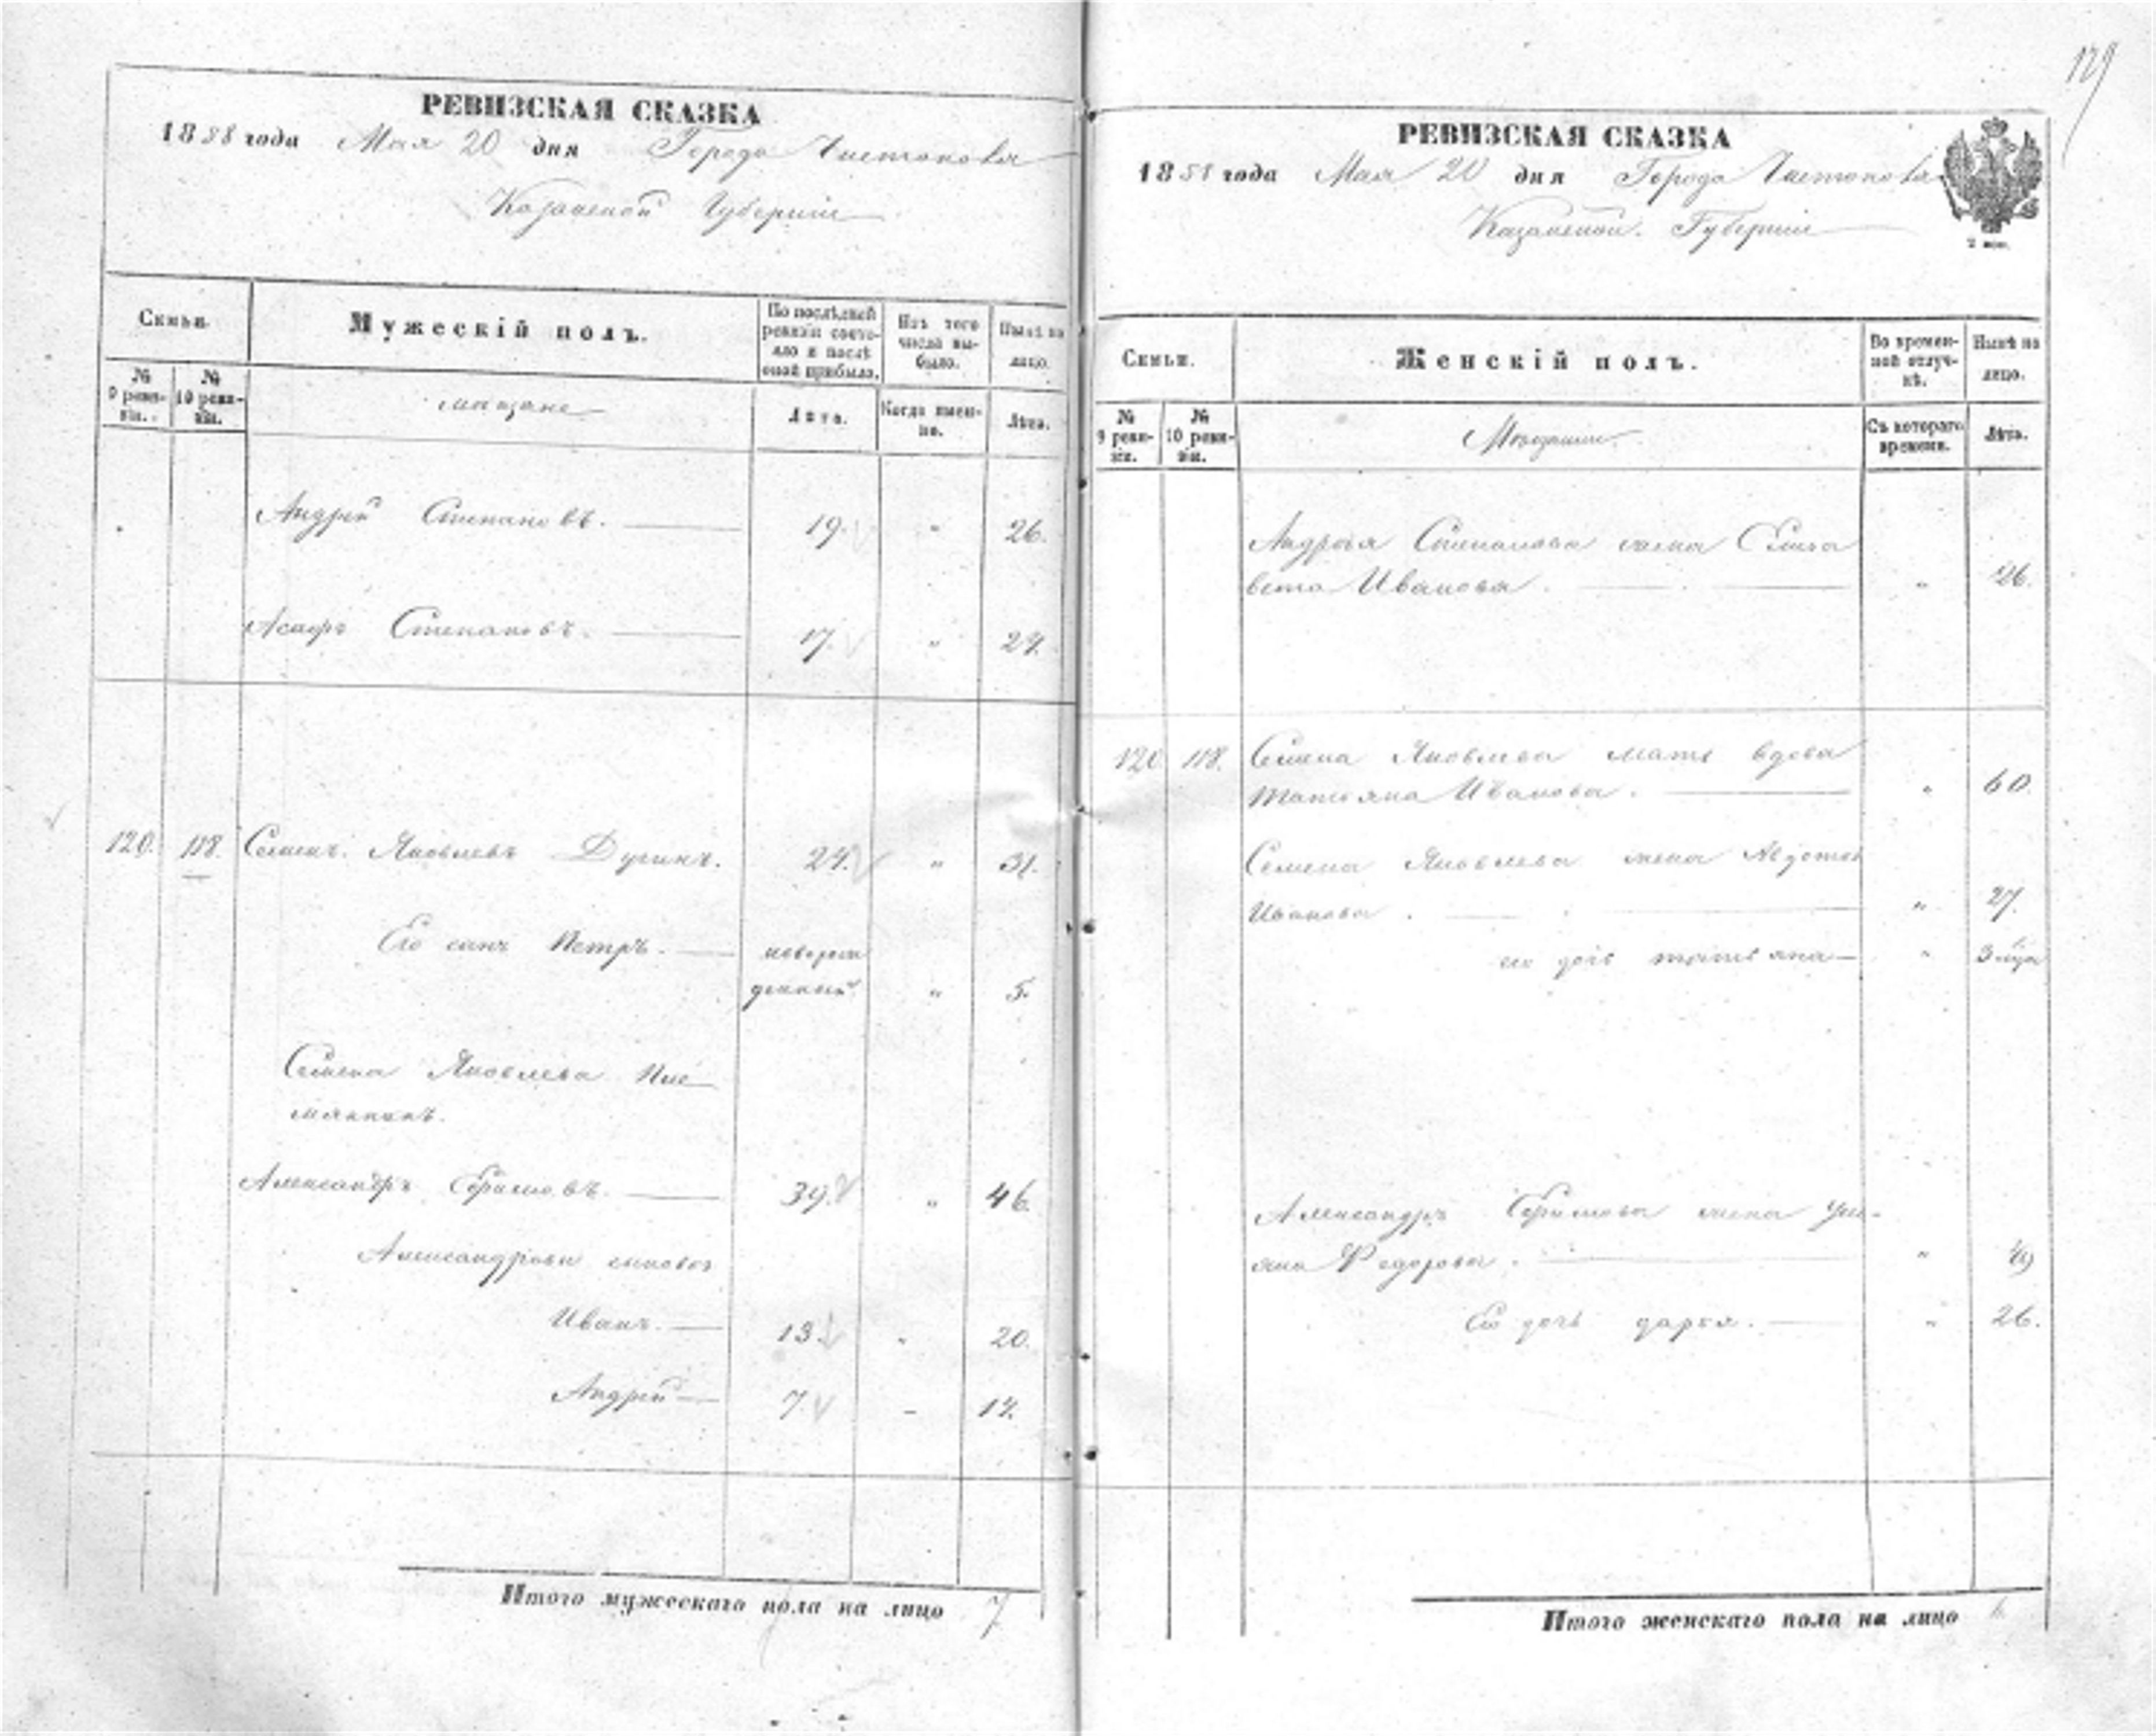 129
РЕВИЗСКАЯ СКАЗКА
1858 года Мая 20 дня Города Чистополя
Казанской Губерніи
Семьи.
Мужескій полъ.
По послѣдней ревизіи состояло и послѣ оной прибыло.
Изъ того числа выбыло.
Нынѣ на лицо.
№ 9 ревизіи.
№ 10 ревизіи.
мещане
Лѣта.
Когда именно.
Лѣта.
Андрей Степановъ. 19. " 26.
Асафъ Степановъ. 17. " 24.
120. 118. Семенъ Яковлевъ Дугинъ. 24. " 31.
Его сынъ Петръ. новорож
денный " 5.
Семена Яковлева Пле
мянникъ.
Александръ 39. " 46.
Александровы сыновья
Иванъ. 13. " 20.
Андрей 7. " 14.
Итого мужескаго пола на лицо 7
РЕВИЗСКАЯ СКАЗКА
1858 года Мая 20 дня Города Чистополя
Казанской Губерніи
2 коп.
Семьи.
Женскій полъ.
Во временной отлучкѣ.
Нынѣ на лицо.
№ 9 ревизіи.
№ 10 ревизіи.
Мещанки
Съ котораго времени.
Лѣта.
Андрея Степанова жена Елиза
вета Иванова. " 26.
120 118. Семена Яковлева мать вдова
Татьяна Иванова. " 60.
Семена Яковлева жена Авдотья
Иванова. " 27.
его дочь татьяна " 3 мѣся
Александръ жена Уль-
яна Федорова. " 49
Его дочь дарья. " 26.
Итого женскаго пола на лицо